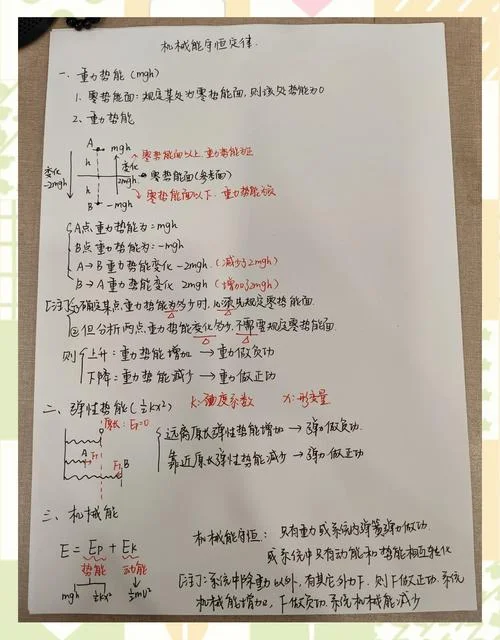 机械能守恒定律.
一、重力势能(mgh)
1. 零势能面：规定某处为零势能面,则该处势能为0
2. 重力势能
A mgh
零势能面以上.重力势能为正
h
变化
-2mgh
变化
2mgh
零势能面(参考面)
h
零势能面以下.重力势能为负
B -mgh
A点重力势能为=mgh
B点重力势能为:-mgh
A→B重力势能变化-2mgh.(减少了2mgh)
B→A重力势能变化 2mgh.(增加了2mgh)
[注]:①确定某点重力势能为多少时,必须先规定零势能面.
②但分析两点重力势能变化多少,不需要规定零势能面.
则 上升：重力势能增加→重力做负功
下降：重力势能减少→重力做正功
二、弹性势能(½kx²) k:劲度系数 x:形变量
原长:Ep=0
A
B
远离原长弹性势能增加→弹力做负功.
靠近原长弹性势能减少→弹力做正功
三、机械能
E = Ep + Ek
势能 动能
mgh ½kx² ½mv²
机械能守恒：只有重力或系统内弹簧弹力做功.
或系统中只有动能和势能相互转化
[注]:系统中除重力以外,有其它外力F.则F做正功.系统
机械能增加,F做负功.系统机械能减少